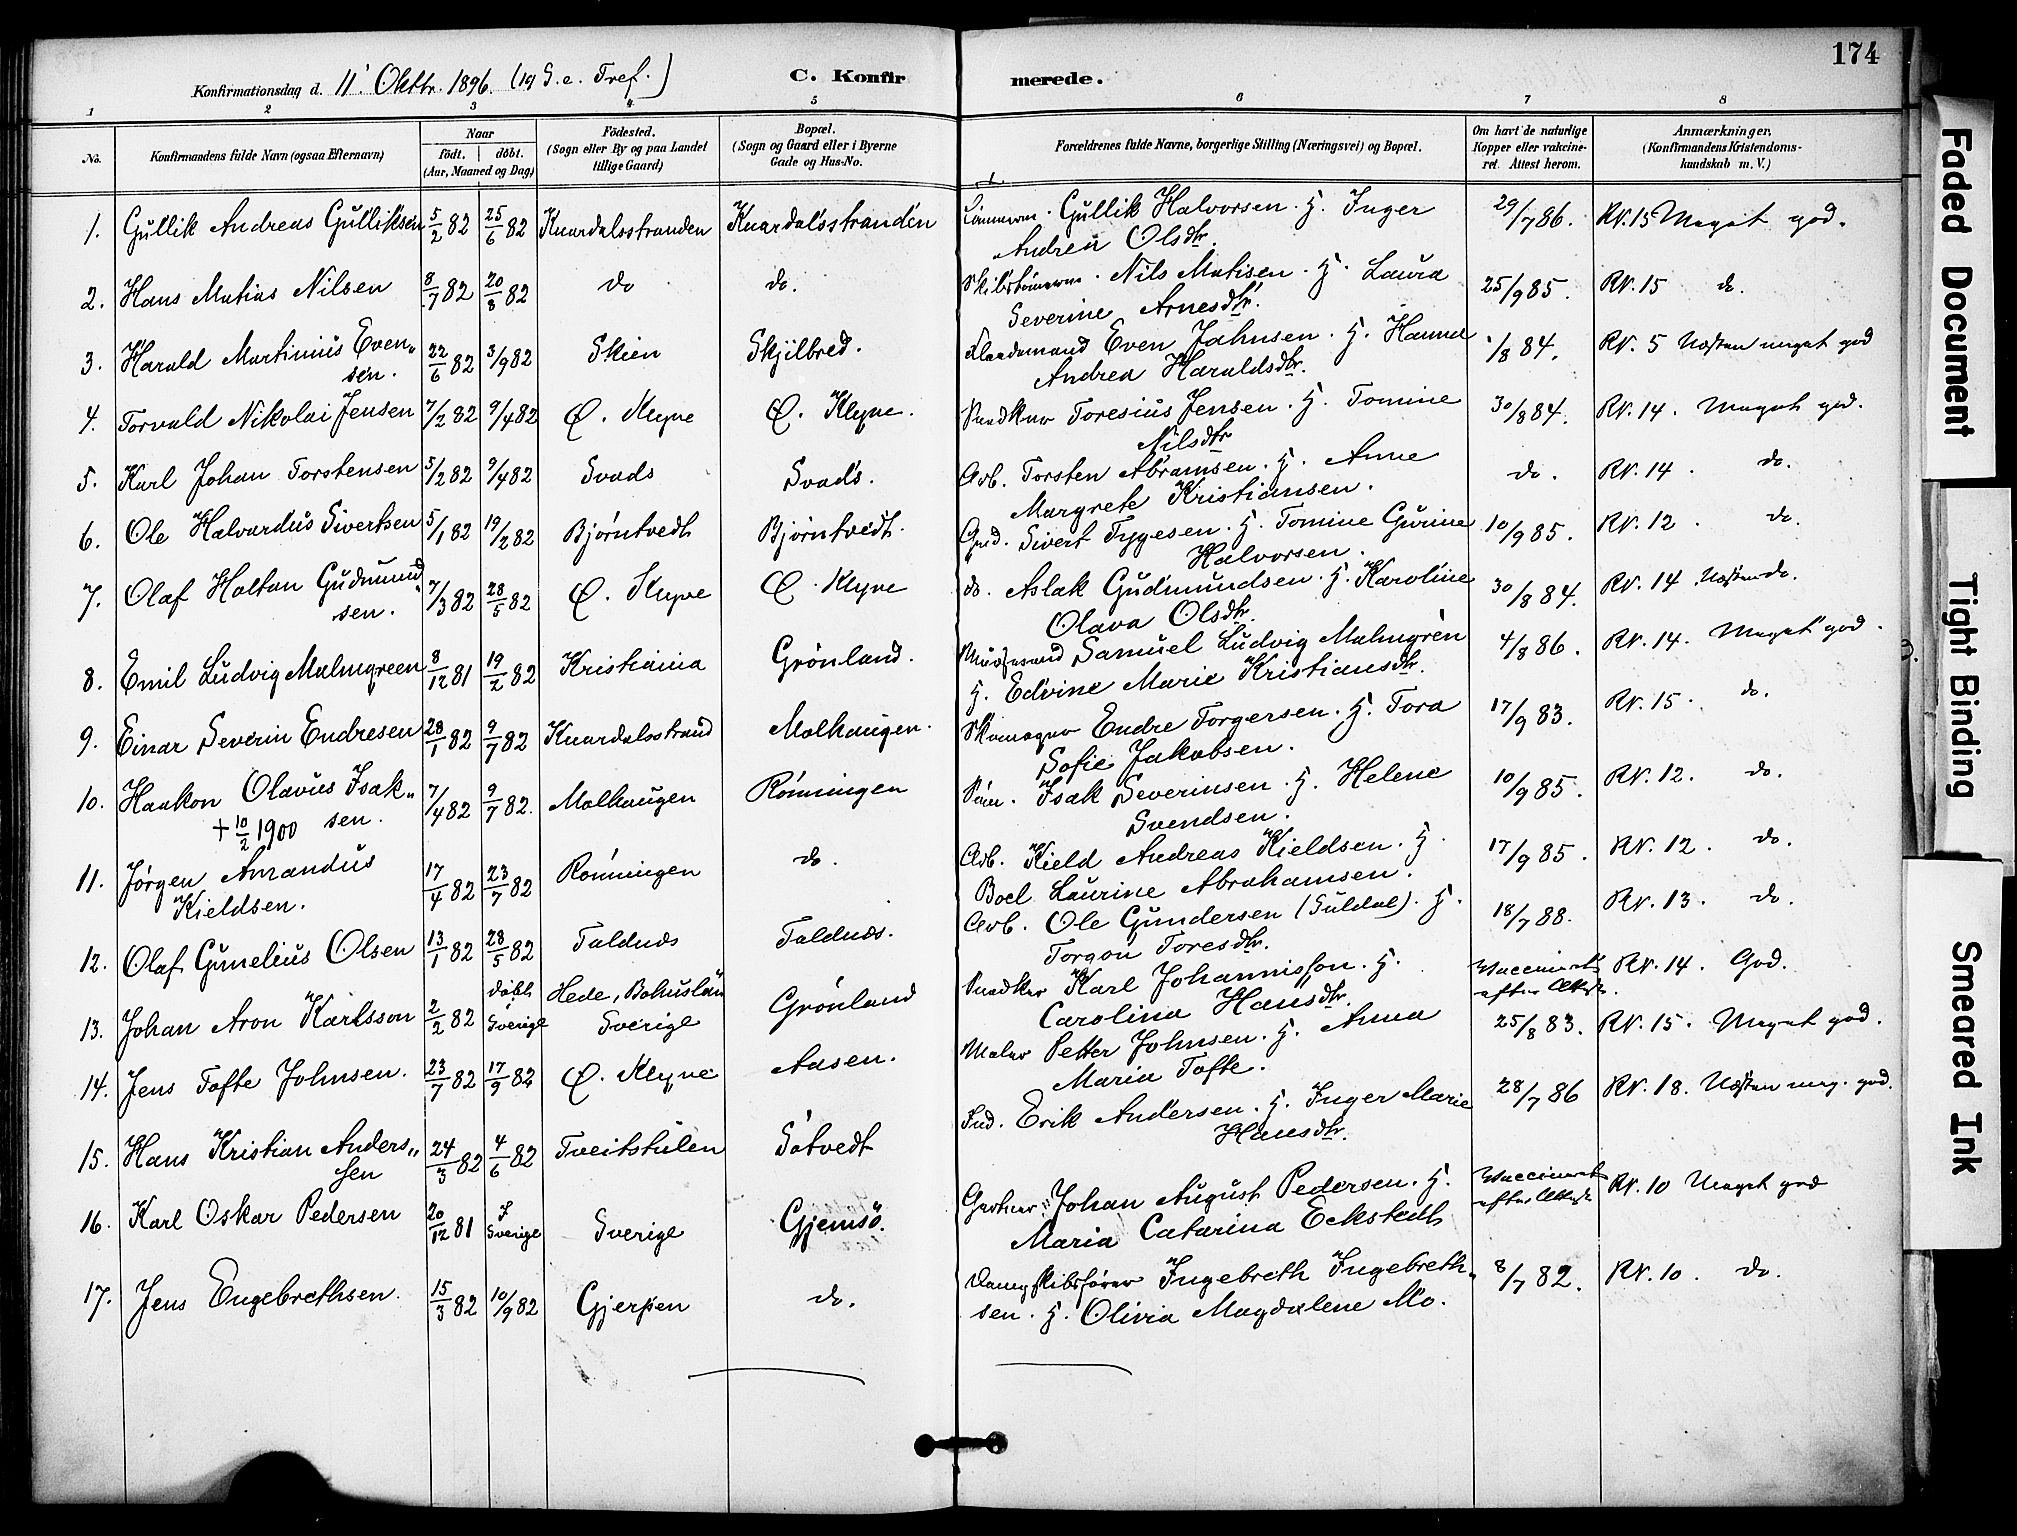 174
Konfirmationsdag d. 11' Oktbr. 1896. (19 S. e. Tref.)
C. Konfirmerede.
1 2 3 4 5 6 7 8
No.
Konfirmandens fulde Navn (ogsaa Efternavn)
Naar födt. | döbt. (Aar, Maaned og Dag)
Födested. (Sogn eller By og paa Landet tillige Gaard)
Bopæl. (Sogn og Gaard eller i Byerne Gade og Hus-No.
Forældrenes fulde Navne, borgerlige Stilling (Næringsvei) og Bopæl.
Om havt de naturlige Kopper eller vakcineret. Attest herom.
Anmærkninger. (Konfirmandens Kristendomskundskab m. V.)
1. Gullik Andreas Gulliksen 5/2 82 25/6 82 Knardalsstranden Knardalsstranden Tömmerm. Gullik Halvorsen. H. Inger 29/7 86. Nr. 15 Meget god.
Andrea Olsdtr.
2. Hans Matias Nilsen 8/7 82 20/8 82 do do. Skibstömerm. Nils Matisen. H. Laura 25/9 85. Nr. 15 do.
Severine Arnesdtr.
3. Harald Martinius Even„ 22/6 82 3/9 82 Skien Skjilbred. Even Jahnsen. H. Hanna /8 84. Nr. 5 Næsten meget god
sen. Andrea Haraldsdtr.
4. Torvald Nikolai Jensen 7/2 82 9/4 82 Ö. Klyve Ö. Klyve. Snedker Toresius Jensen. H. Tomine 30/8 84. Nr. 14. Meget god.
Nilsdtr
5. Karl Johan Torstensen 5/2 82 9/4 82 Svads Svads. Arb. Torsten Abramsen. H. Anne do. Nr. 14. do.
Margrete Kristiansen.
6. Ole Halvardus Sivertsen 5/1 82 19/2 82 Bjørntvedt Bjørntvedt. Gmd. Sivert Tygesen. H. Tomine Gurine 10/9 85. Nr. 12. do.
Halvorsen.
7. Olaf Holtan Gudmund„ 7/3 82 28/5 82 Ö. Klyve Ö. Klyve do. Aslak Gudmundsen. H. Karoline 30/8 84. Nr. 14 Næsten do.
sen. Olava Olsdtr.
8. Emil Ludvig Malmgreen 8/12 81 19/2 82 Kristiania Grönland. Murersvend Samuel Ludvig Malmgrèn 4/8 86. Nr. 14. Meget god.
H. Edvine Marie Kristiansdtr.
9. Einar Severin Endresen 28/1 82 9/7 82 Knardalsstrand Molhaugen. Skomager Endre Torgersen. H. Tora 17/9 83. Nr. 15. do.
Sofie Jakobsen.
10. Haakon Olavus Isak„ 7/4 82 9/7 82. Molhaugen Rönningen Isak Severinsen. H. Helene 10/9 85. Nr. 12. do.
+ 10/2 1900 sen. Svendsen.
11. Jørgen Amandus 17/4 82 23/7 82 Rönningen do. Arb. Kield Andreas Kieldsen. H. 17/9 85. Nr. 12. do.
Kieldsen. Boel Laurine Abrahamsen.
12. Olaf Gunelius Olsen 13/1 82 28/5 82 Faldnes Faldnes. Arb. Ole Gundersen (Suldal). H. 18/7 88. Nr. 13. do.
Torgon Toresdtr.
13. Johan Aron Karlsson 2/2 82 döbt Sverige Hede, Bohuslän Sverige Grönland Snedker Karl Johannisson. H. Vaccineret efter Attest. Nr. 14. God.
Carolina Hansdtr.
14. Jens Tofte Johnsen. 23/7 82 17/9 82 Ö. Klyve Aasen. Maler Petter Johnsen. H. Anna 25/8 83. Nr. 15. Meget god.
Maria Tofte.
15. Hans Kristian Anders„ 24/3 82 4/6 82 Tveitstulen Sötvedt Ind. Erik Andersen. H. Inger Marie 28/7 86 Nr. 18. Næsten meg. god.
sen Hansdtr.
16. Karl Oskar Pedersen 20/12 81 I Sverige Sverige Gjemsö. Gartner Johan August Pedersen. H. Vaccineret efter Attest Nr. 10 Meget god
Maria Catarina Eckstedt
17. Jens Engebrethsen. 15/3 82 10/9 82 Gjerpen do. Dampskibsfører Ingebreth Ingebreth„ 8/7 82. Nr. 10. do.
sen. H. Olivia Magdalene Mo.
Faded Document
Tight Binding
Smeared Ink